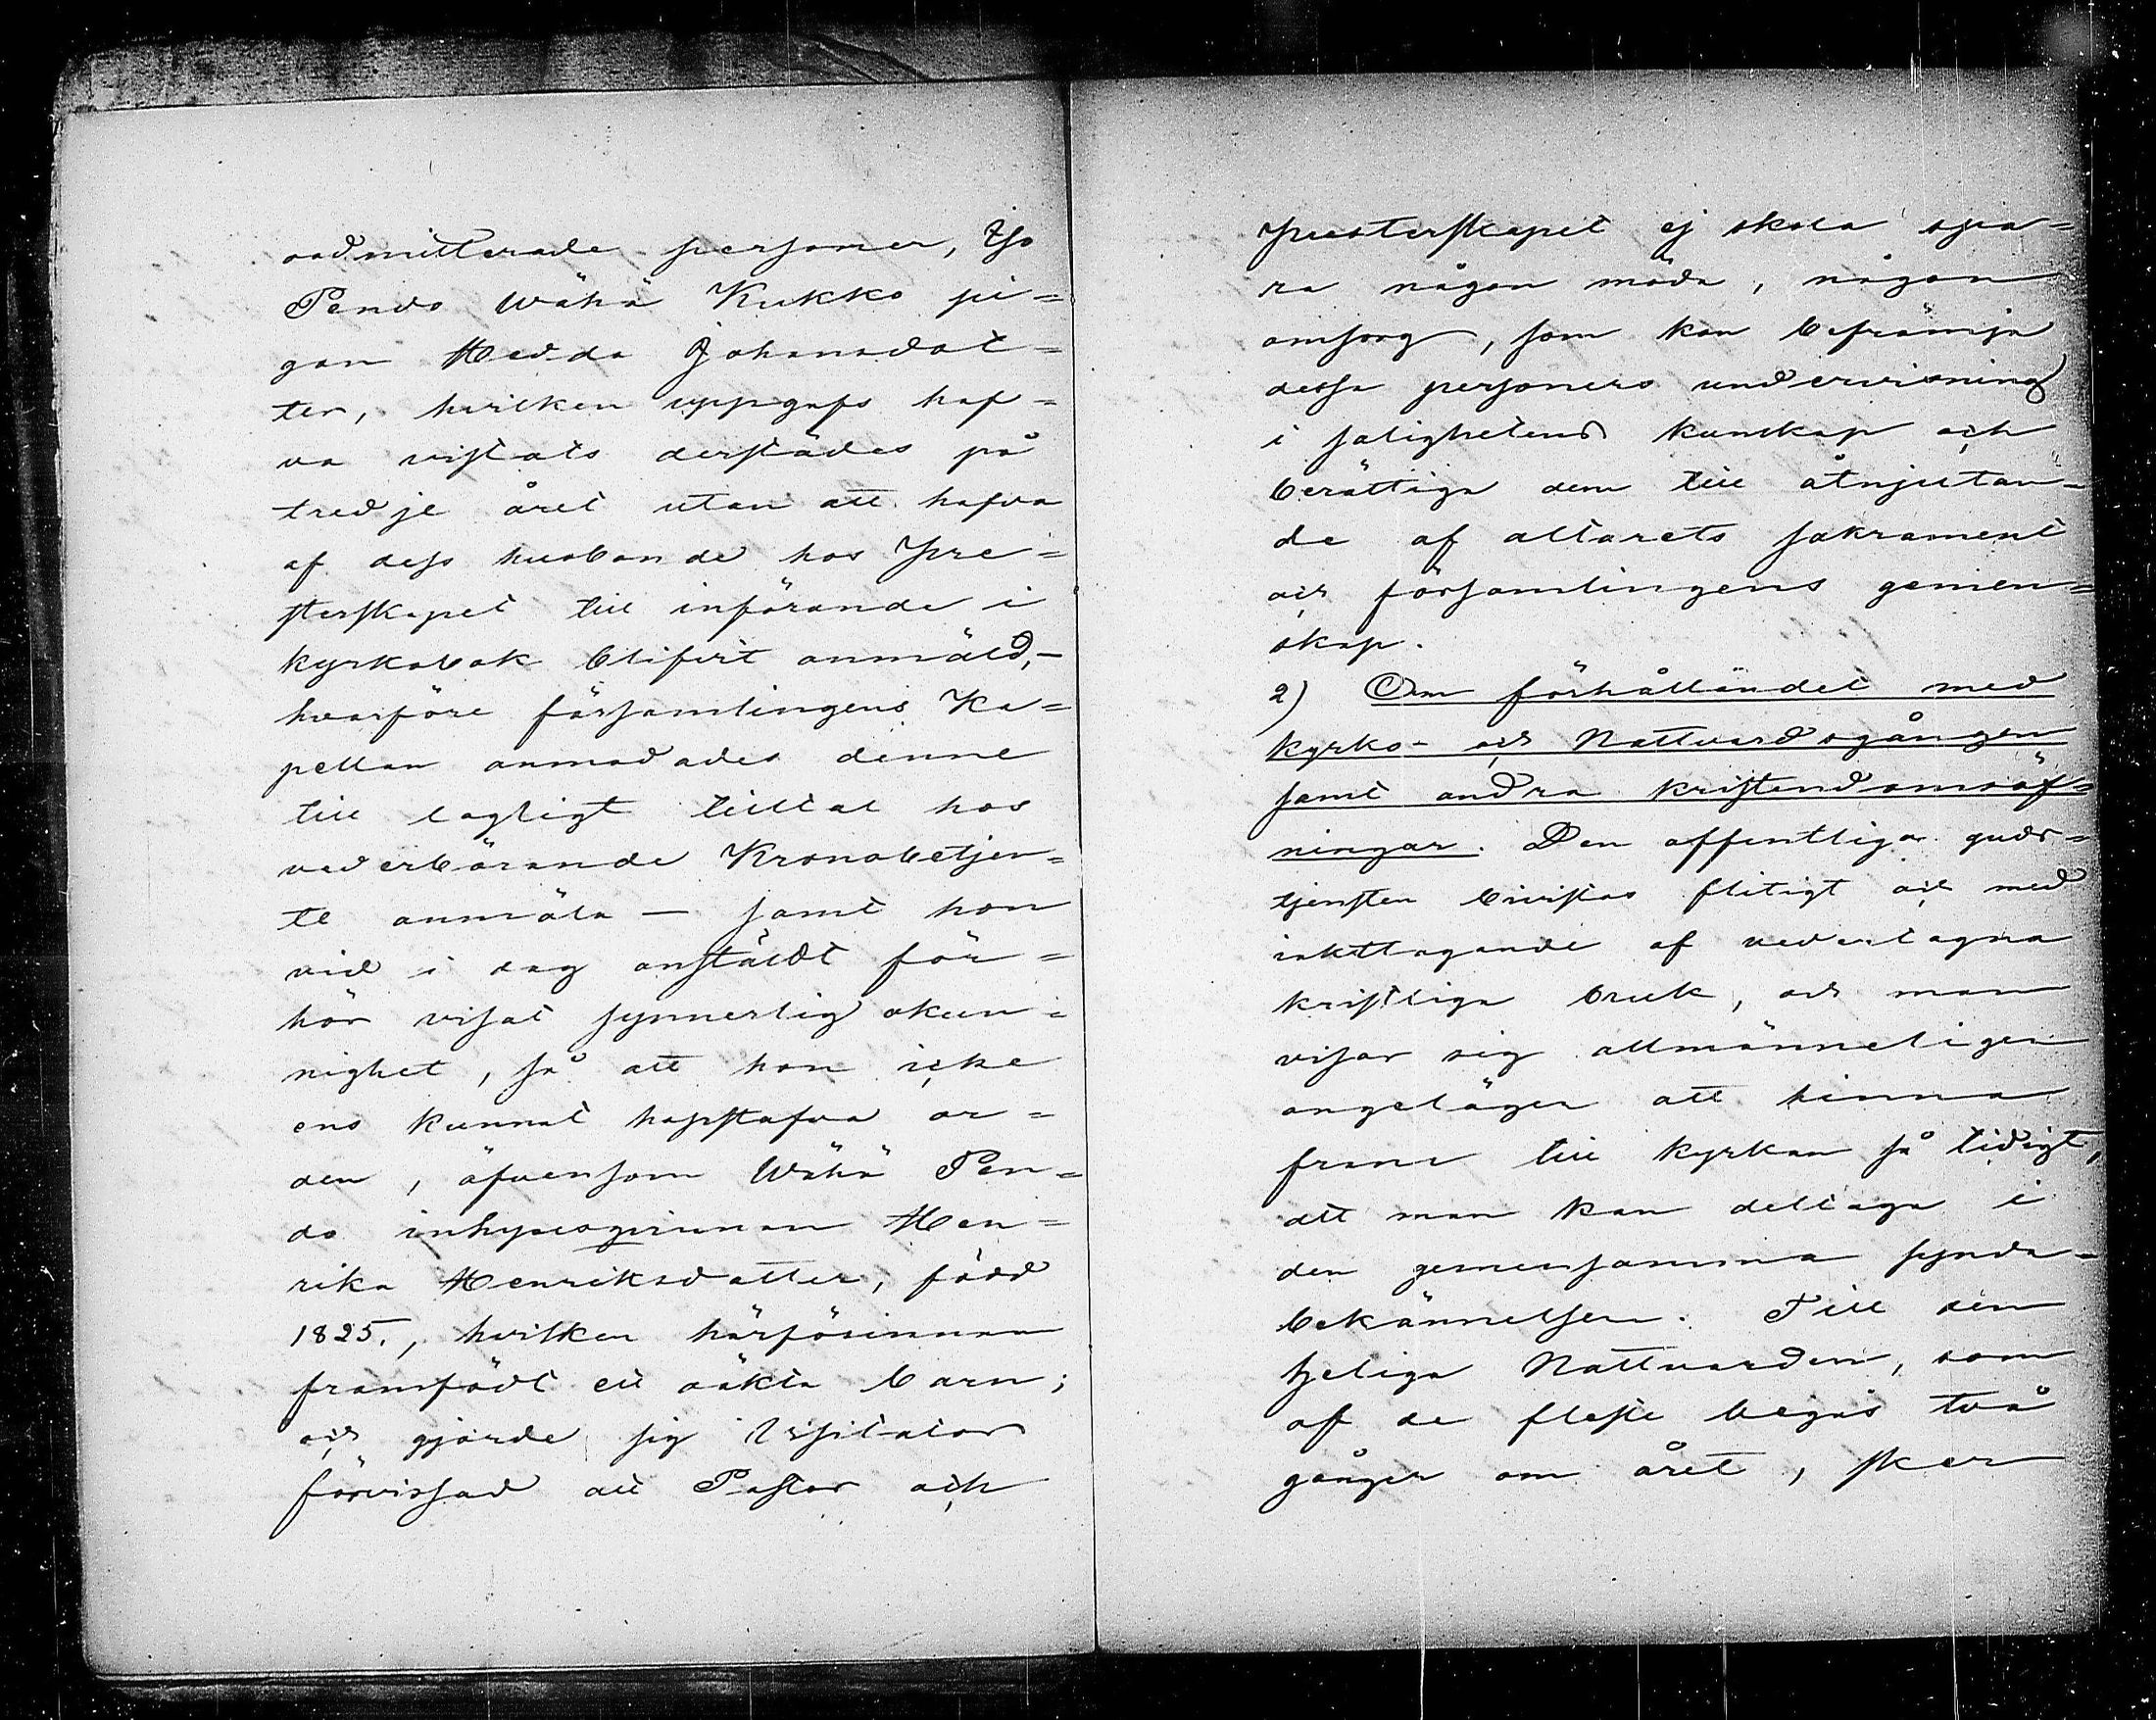 oadmitterade personer, Iso
Pendo Wähä Kukko pi=
gan Hedda Johansdot=
ter, hvilken uppgafs haf=
va vistats derstädes på
tredje året utan att hafva
af dess husbonde hos Pre=
sterskapet till införande i
kyrkobok blifvit anmäld,—
hvarföre församlingens Ka=
pellan anmodades denne
till lagligt tilltal hos
vederbörande Kronobetjen=
te anmäla — samt hon
vid i dag anstäldt för=
hör visat synnerlig okun=
nighet, så att hon icke
ens kunnat hopstafva or=
den, äfvensom Wähä Pen=
do inhysesqvinnan Hen=
rika Henriksdotter, född
1825., hvilken härförinnan
framfödt ett oäkta barn;
och gjorde sig Visitator
förvissad att Pastor och
Presterskapet ej skola spa=
ra någon möda, någon
omsorg, som kan befrämja
dessa personers undervisning
i salighetens kunskap och
berättiga dem till åtnjutan=
de af altarets sakrament
och församlingens gemen=
skap.
2) Om förhållandet med
kyrko- och Nattvardsgången
samt andra kristendomsöf=
ningar. Den offentliga guds=
tjensten bivistas flitigt och med
iakttagande af vedertagna
kristliga bruk, och man
visar sig allmänneligen
angelägen att hinna
fram till kyrkan så tidigt,
att man kan deltaga i
den gemensamma synda=
bekännelsen. Till den
heliga Nattvarden, som
af de fleste begås två
gånger om året, sker